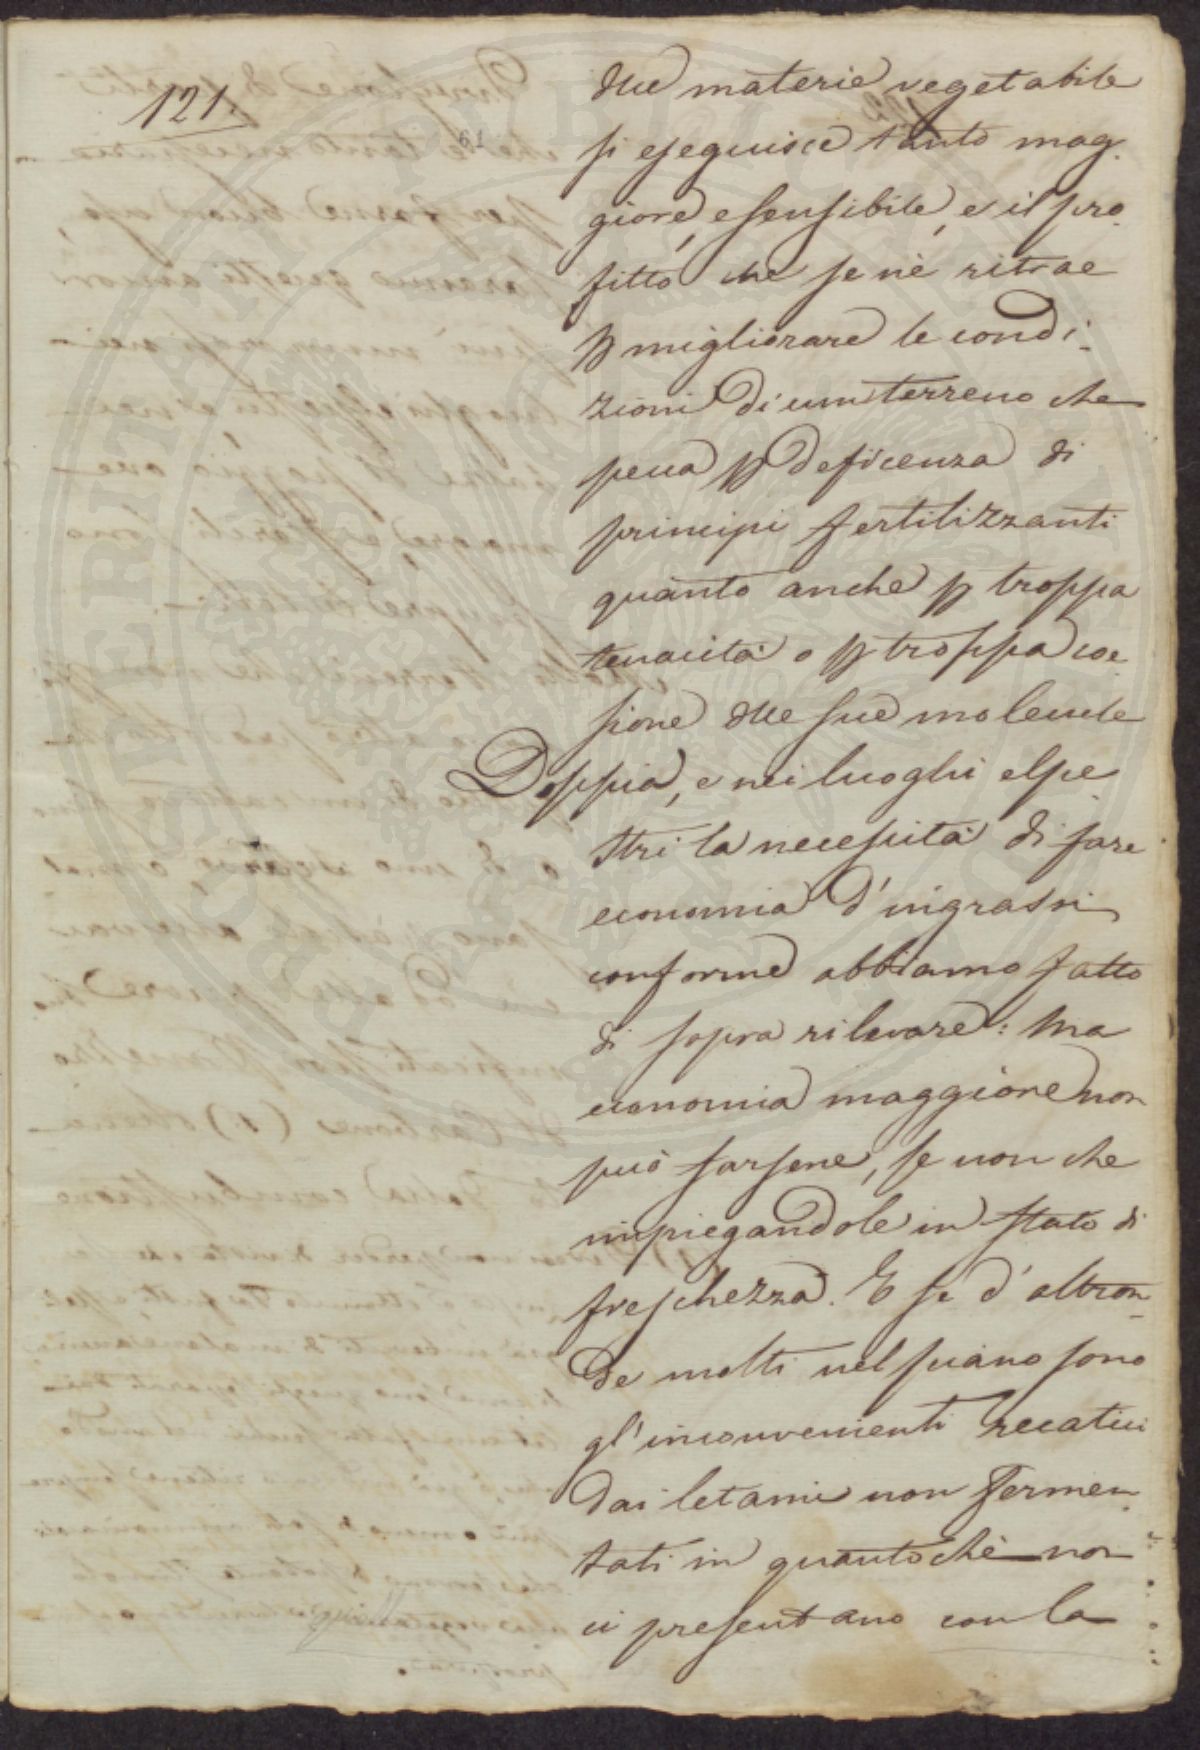 121.
61
dlle materie vegetabile
si eseguisce tanto mag-
giore, e sensibile, e il pro-
fitto che se nè ritrae
p migliorare le condi-
zioni di un terreno che
pecca p deficenza di
principi fertilizzanti
quanto anche p troppa
tenacità o p troppa coe-
sione dlle sue molecule
Doppia, e nei luoghi alpe
stri la necessità di fare
economia d'ingrassi
conforme abbiamo fatto
di sopra rilevare: ma
economia maggiore non
può farsene, se non che
impiegandole in stato di
freschezza. E se d'altron-
de molti nel piano sono
gl'inconvenienti recatici
dai letami non fermen-
tati in quanto chè non
ci presentano con la